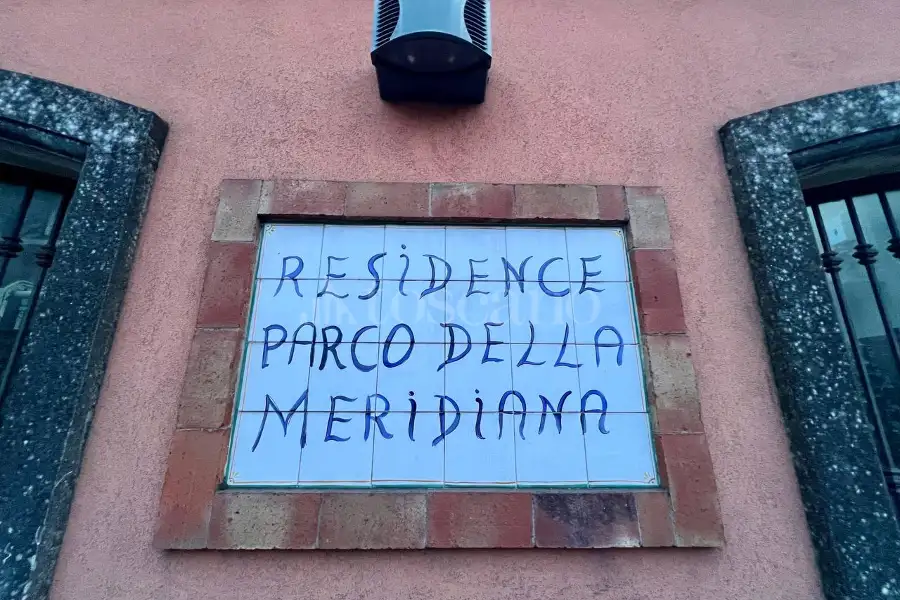 RESiDENCE
PARCO DELLA
MERiDiANA
toscano